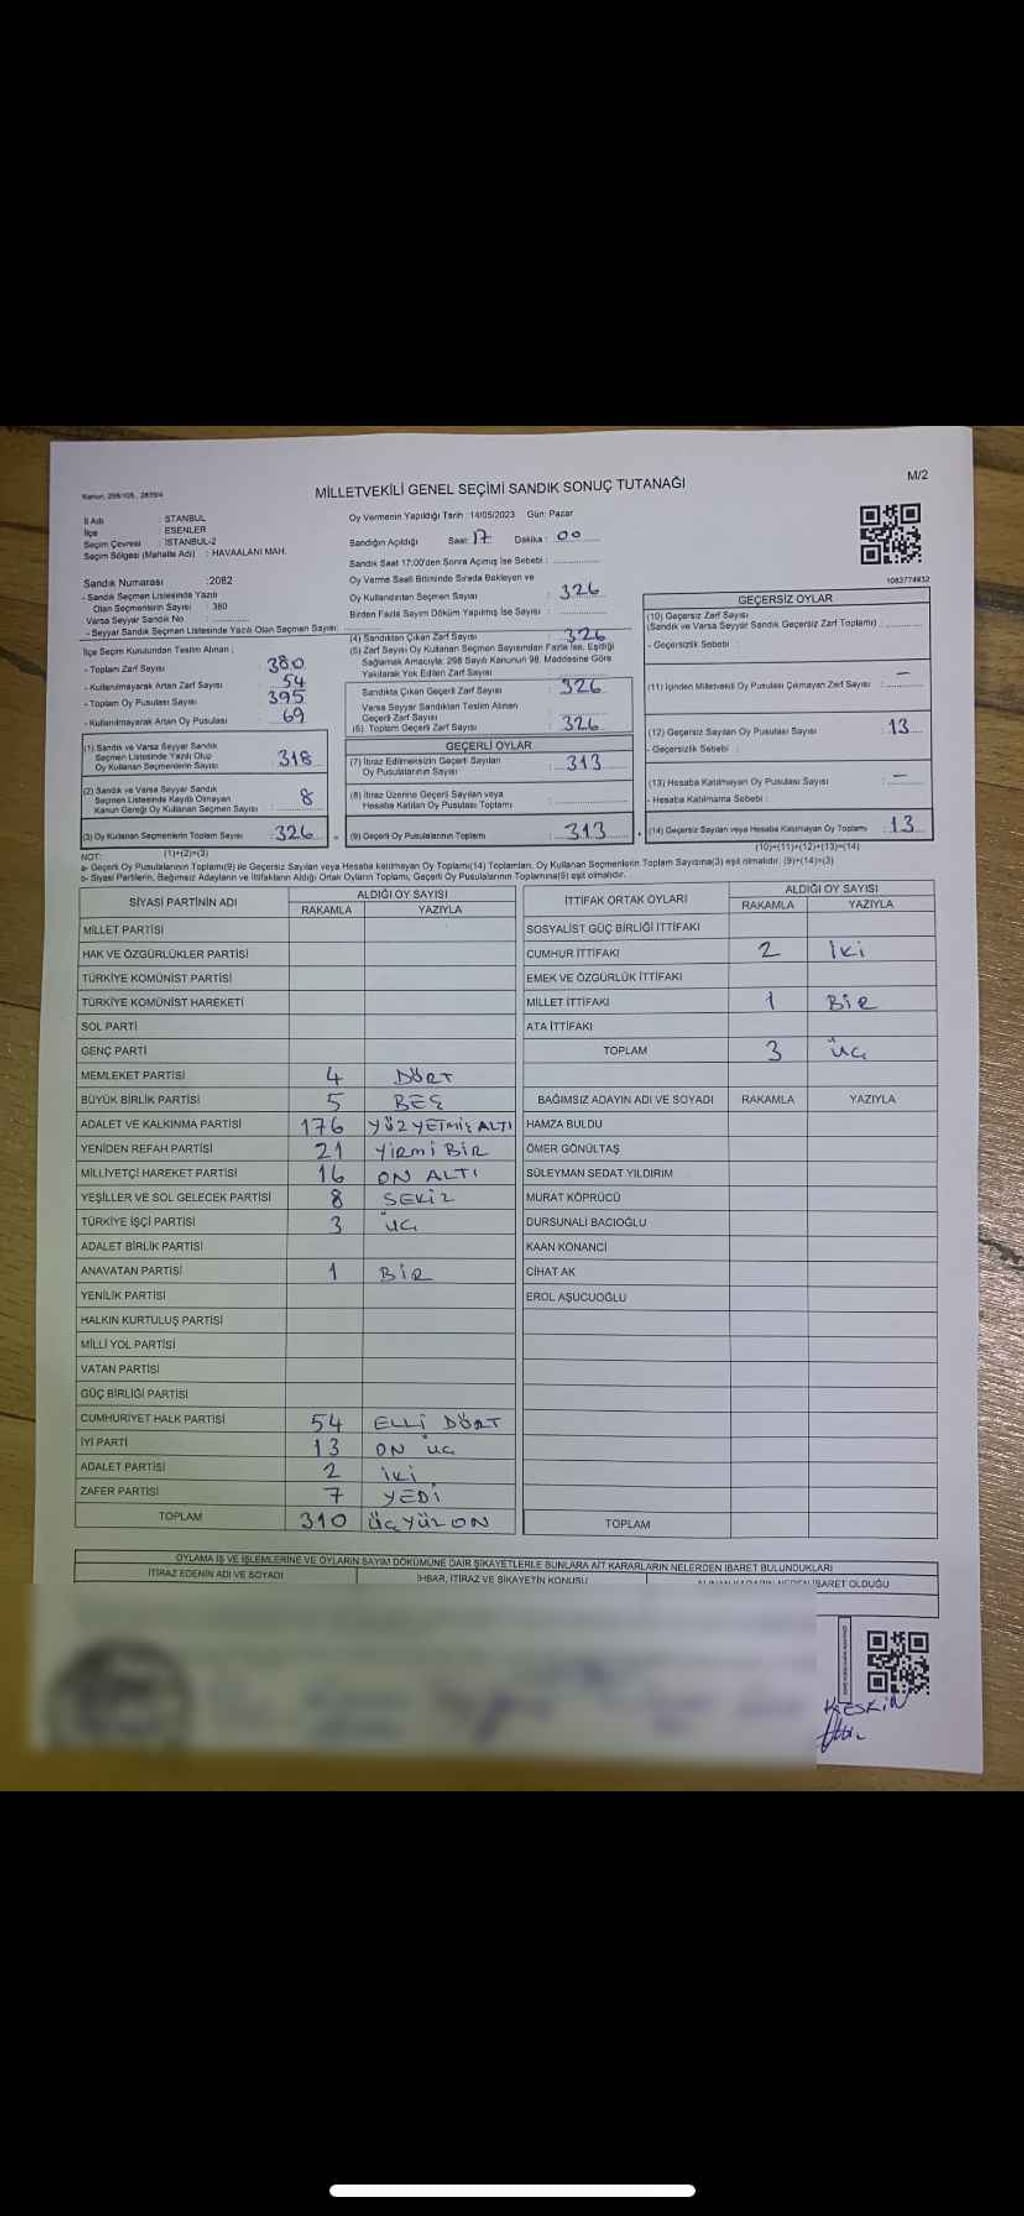 Kanun: 298/105, 2839/4
MİLLETVEKİLİ GENEL SEÇİMİ SANDIK SONUÇ TUTANAĞI
M/2
İl Adı : İSTANBUL
İlçe : ESENLER
Seçim Çevresi : İSTANBUL-2
Seçim Bölgesi (Mahalle Adı) : HAVAALANI MAH.
Sandık Numarası :2082
- Sandık Seçmen Listesinde Yazılı
Olan Seçmenlerin Sayısı : 380
Varsa Seyyar Sandık No :
- Seyyar Sandık Seçmen Listesinde Yazılı Olan Seçmen Sayısı:
İlçe Seçim Kurulundan Teslim Alınan ;
- Toplam Zarf Sayısı : 380
- Kullanılmayarak Artan Zarf Sayısı : 54
- Toplam Oy Pusulası Sayısı : 395
- Kullanılmayarak Artan Oy Pusulası : 69
(1) Sandık ve Varsa Seyyar Sandık
Seçmen Listesinde Yazılı Olup
Oy Kullanan Seçmenlerin Sayısı : 318
(2) Sandık ve Varsa Seyyar Sandık
Seçmen Listesinde Kayıtlı Olmayan
Kanun Gereği Oy Kullanan Seçmen Sayısı : 8
(3) Oy Kullanan Seçmenlerin Toplam Sayısı : 326
(1)+(2)=(3)
Oy Vermenin Yapıldığı Tarih :14/05/2023 Gün: Pazar
Sandığın Açıldığı Saat: 17 Dakika : 00
Sandık Saat 17:00'den Sonra Açılmış İse Sebebi :
Oy Verme Saati Bitiminde Sırada Bekleyen ve
Oy Kullandırılan Seçmen Sayısı : 326
Birden Fazla Sayım Döküm Yapılmış İse Sayısı :
(4) Sandıktan Çıkan Zarf Sayısı : 326
(5) Zarf Sayısı Oy Kullanan Seçmen Sayısından Fazla İse, Eşitliği
Sağlamak Amacıyla; 298 Sayılı Kanunun 98. Maddesine Göre
Yakılarak Yok Edilen Zarf Sayısı
Sandıkta Çıkan Geçerli Zarf Sayısı : 326
Varsa Seyyar Sandıktan Teslim Alınan
Geçerli Zarf Sayısı
(6) Toplam Geçerli Zarf Sayısı : 326
GEÇERLİ OYLAR
(7) İtiraz Edilmeksizin Geçerli Sayılan
Oy Pusulalarının Sayısı : 313
(8) İtiraz Üzerine Geçerli Sayılan veya
Hesaba Katılan Oy Pusulası Toplamı :
(9) Geçerli Oy Pusulalarının Toplamı : 313
1082774832
GEÇERSİZ OYLAR
(10) Geçersiz Zarf Sayısı
(Sandık ve Varsa Seyyar Sandık Geçersiz Zarf Toplamı) :
- Geçersizlik Sebebi :
(11) İçinden Milletvekili Oy Pusulası Çıkmayan Zarf Sayısı : –
(12) Geçersiz Sayılan Oy Pusulası Sayısı : 13
- Geçersizlik Sebebi :
(13) Hesaba Katılmayan Oy Pusulası Sayısı : –
- Hesaba Katılmama Sebebi :
(14) Geçersiz Sayılan veya Hesaba Katılmayan Oy Toplamı : 13
(10)+(11)+(12)+(13)=(14)
NOT:
a- Geçerli Oy Pusulalarının Toplamı(9) ile Geçersiz Sayılan veya Hesaba katılmayan Oy Toplamı(14) Toplamları, Oy Kullanan Seçmenlerin Toplam Sayısına(3) eşit olmalıdır. (9)+(14)=(3)
b- Siyasi Partilerin, Bağımsız Adayların ve İttifakların Aldığı Ortak Oyların Toplamı, Geçerli Oy Pusulalarının Toplamına(9) eşit olmalıdır.
SİYASİ PARTİNİN ADI ALDIĞI OY SAYISI
RAKAMLA YAZIYLA
MİLLET PARTİSİ
HAK VE ÖZGÜRLÜKLER PARTİSİ
TÜRKİYE KOMÜNİST PARTİSİ
TÜRKİYE KOMÜNİST HAREKETİ
SOL PARTİ
GENÇ PARTİ
MEMLEKET PARTİSİ 4 DÖRT
BÜYÜK BİRLİK PARTİSİ 5 BEŞ
ADALET VE KALKINMA PARTİSİ 176 YÜZYETMİŞ ALTI
YENİDEN REFAH PARTİSİ 21 YİRMİ BİR
MİLLİYETÇİ HAREKET PARTİSİ 16 ON ALTI
YEŞİLLER VE SOL GELECEK PARTİSİ 8 SEKİZ
TÜRKİYE İŞÇİ PARTİSİ 3 ÜÇ
ADALET BİRLİK PARTİSİ
ANAVATAN PARTİSİ 1 BİR
YENİLİK PARTİSİ
HALKIN KURTULUŞ PARTİSİ
MİLLİ YOL PARTİSİ
VATAN PARTİSİ
GÜÇ BİRLİĞİ PARTİSİ
CUMHURİYET HALK PARTİSİ 54 ELLİ DÖRT
İYİ PARTİ 13 ON ÜÇ
ADALET PARTİSİ 2 İKİ
ZAFER PARTİSİ 7 YEDİ
TOPLAM 310 ÜÇYÜZ ON
İTTİFAK ORTAK OYLARI ALDIĞI OY SAYISI
RAKAMLA YAZIYLA
SOSYALİST GÜÇ BİRLİĞİ İTTİFAKI
CUMHUR İTTİFAKI 2 İki
EMEK VE ÖZGÜRLÜK İTTİFAKI
MİLLET İTTİFAKI 1 BİR
ATA İTTİFAKI
TOPLAM 3 ÜÇ
BAĞIMSIZ ADAYIN ADI VE SOYADI RAKAMLA YAZIYLA
HAMZA BULDU
ÖMER GÖNÜLTAŞ
SÜLEYMAN SEDAT YILDIRIM
MURAT KÖPRÜCÜ
DURSUNALİ BACIOĞLU
KAAN KONANCI
CİHAT AK
EROL AŞUCUOĞLU
TOPLAM
OYLAMA İŞ VE İŞLEMLERİNE VE OYLARIN SAYIM DÖKÜMÜNE DAİR ŞİKAYETLERLE BUNLARA AİT KARARLARIN NELERDEN İBARET BULUNDUKLARI
İTİRAZ EDENİN ADI VE SOYADI İHBAR, İTİRAZ VE ŞİKAYETİN KONUSU İBARET OLDUĞU
KESKİN